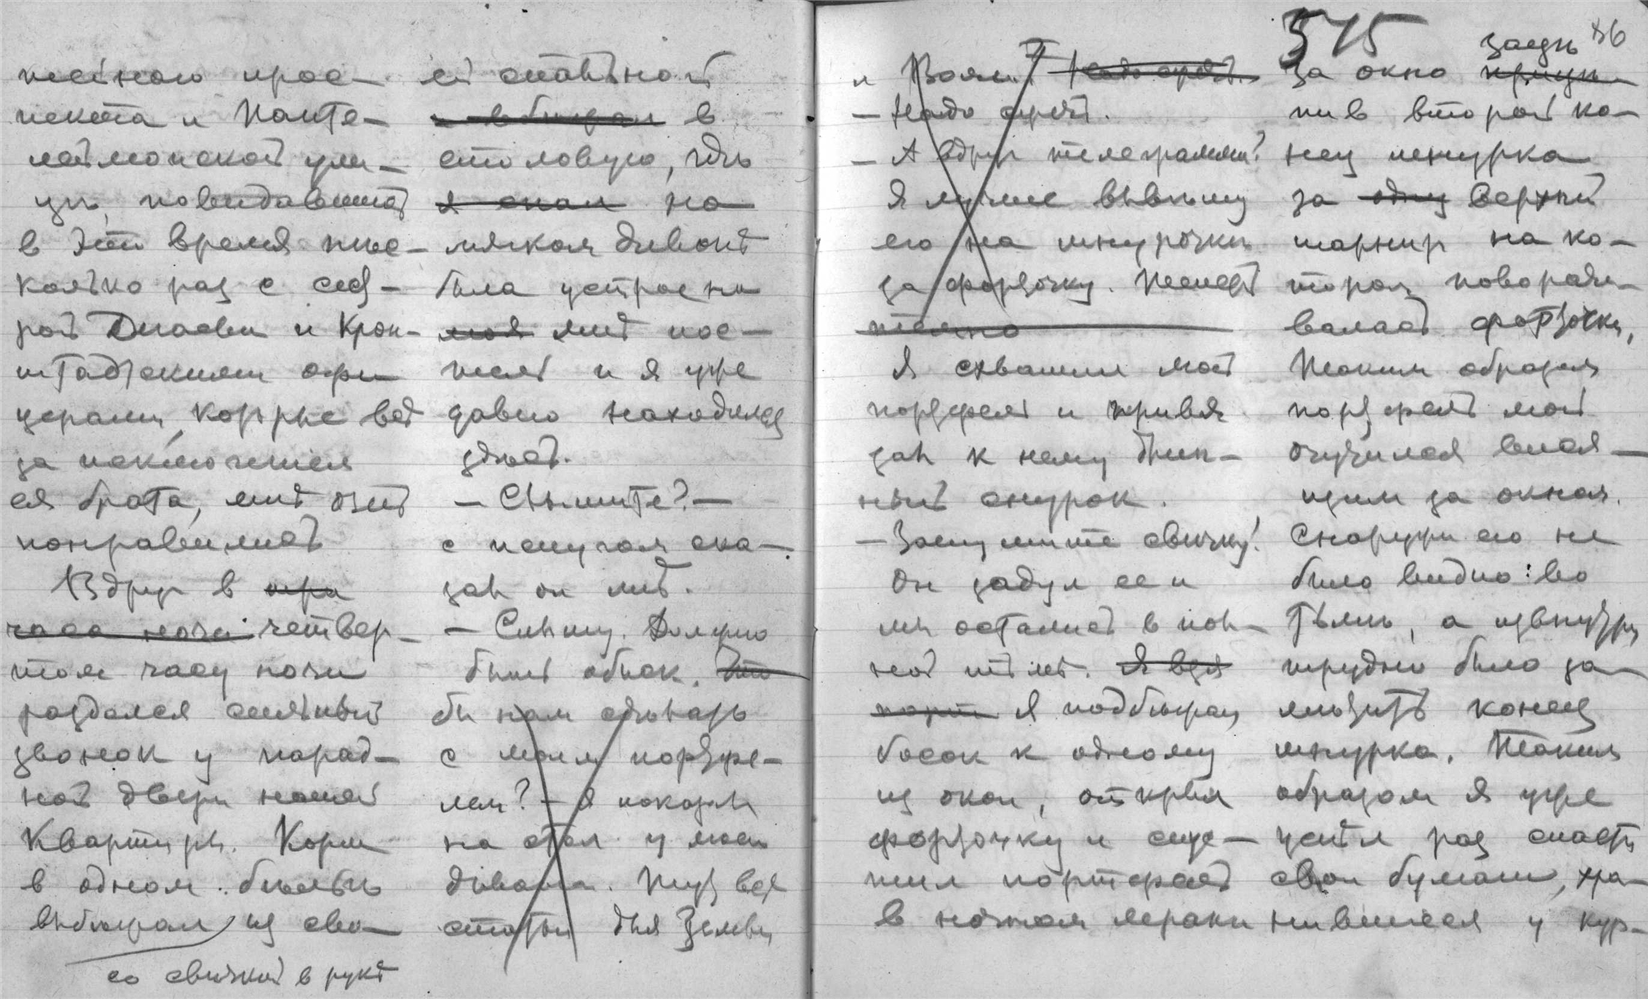 тейного прос-
пекта и Панте-
леймонской ули-
цы, повидавший
в это время нѣс-
колько раз с сест-
рой Дегаева и Крон-
штадтскими офи-
церами, которые всѣ
за исключением
ея брата, мнѣ очень
понравились
Вдруг в три
часа ночи четвер-
том часу ночи
раздался сильный
звонок у парад-
ной двери нашей
квартиры. Корш
в одном бѣльѣ
выбѣжал из сво-
со свѣчкой в рукѣ
ей спальной
и вбѣжал в
столовую, гдѣ
я спал на
мягком диванѣ
была устроена
моя мнѣ пос-
тель и я уже
давно находился
здѣсь.
– Слышите? –
с испугом ска-
зал он мнѣ.
– Слышу. Должно
быть обыск. Что
бы нам сдѣлать
с моим портфе-
лем? – я показал
на стол у моего
дивана. Тут всѣ
статьи для Земли
575
86
и Воли. Надо спрят.
– Надо спрят.
– А вдруг телеграмма?
Я лучше вывѣшу
его на шнурочкѣ
за форточку.
Я схватил мой
портфель и привя
зал к нему длин-
ный снурок.
– Затушите свѣчку!
Он задул ее и
мы остались в пол-
ной тьмѣ. Я взял
я подбѣжал
босой к одному
из окон, открыл
форточку и спус-
тил портфель
в ночном мраке
зацѣ
за окно прицѣ
пив второй ко-
нец шнурка
за одну верхний
шарнир на ко-
тором поворачи-
валась форточка,
Таким образом
портфель мой
очутился вися-
щим за окном.
Снаружи его не
было видно: во
тьмѣ, а извнутри
трудно было за-
мѣтить конец
шнурка. Таким
образом я уже
успѣл раз спасти
свои бумаги, хра-
нившиеся у кур-